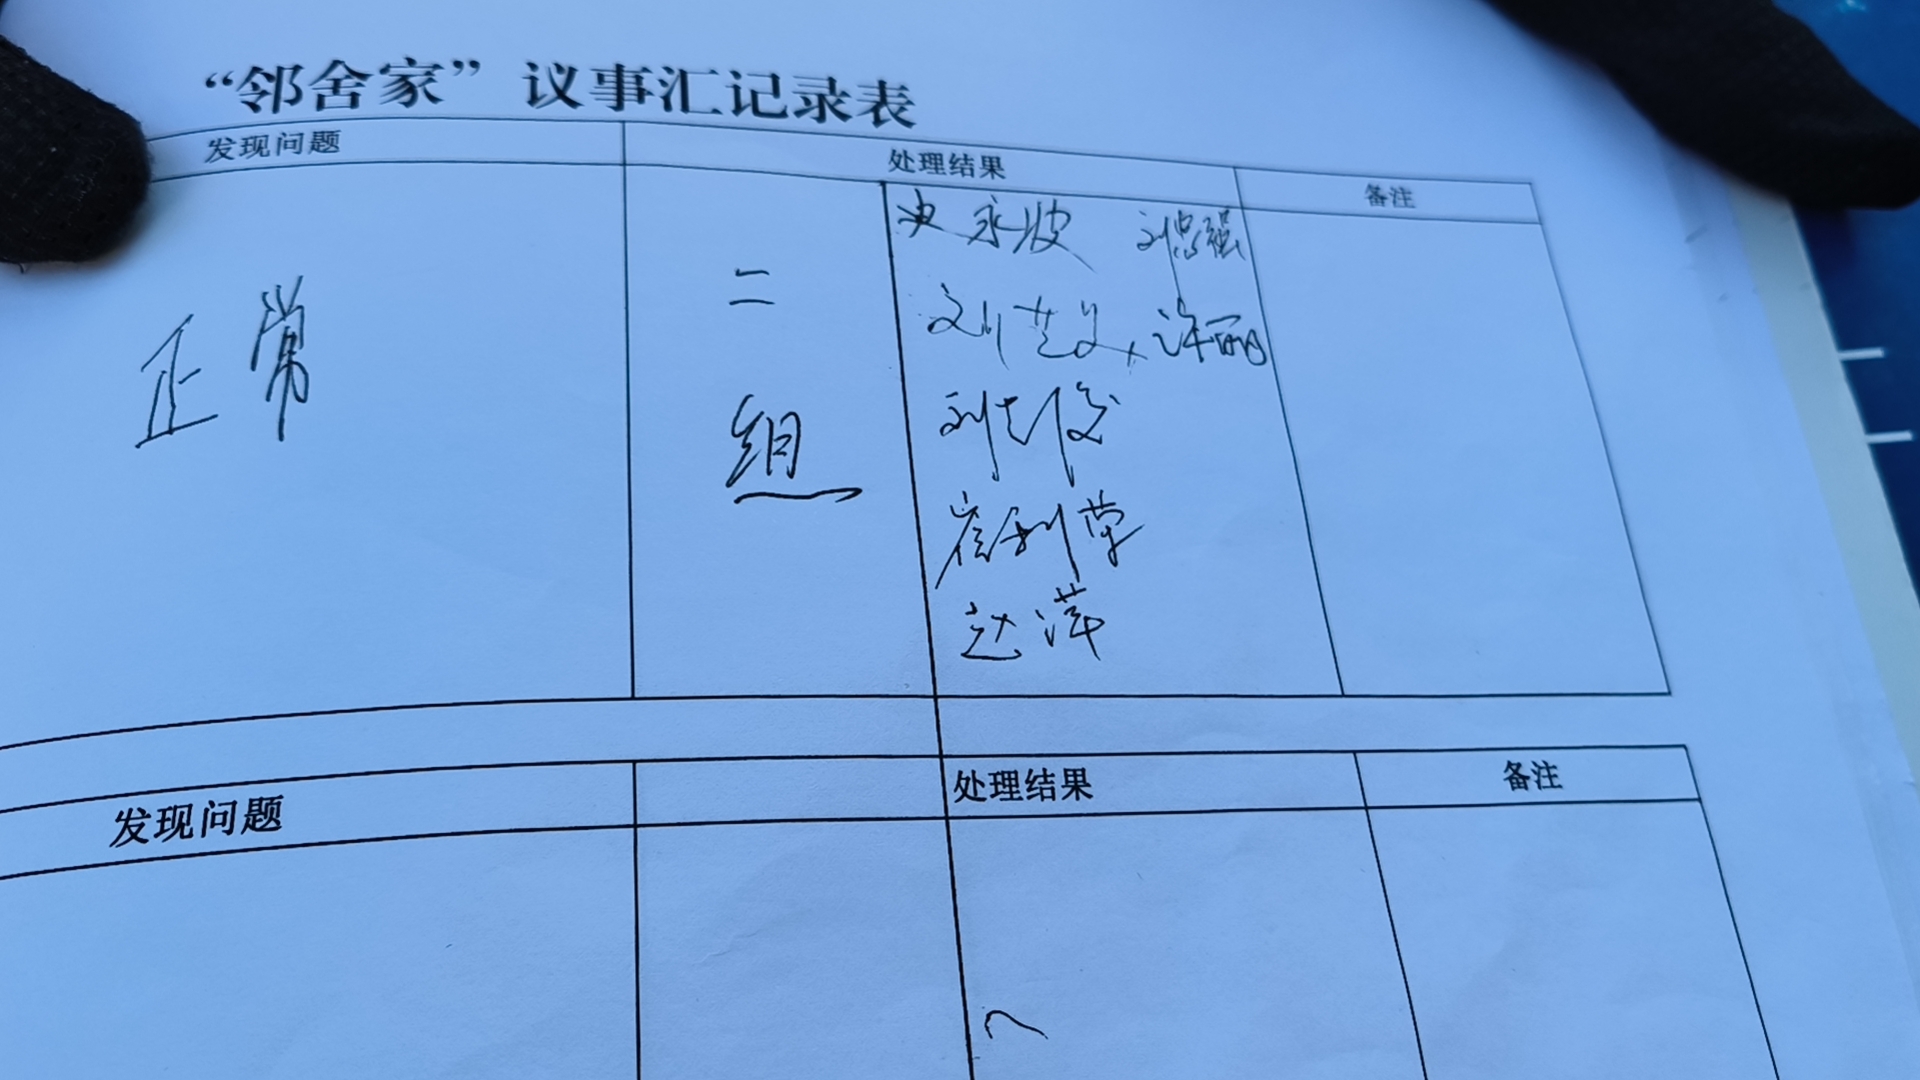 “邻舍家”议事汇记录表
发现问题 处理结果 备注
正常
二组
史永波 刘忠强
刘芝 许丽
刘志俊
崔利荣
赵萍
发现问题 处理结果 备注